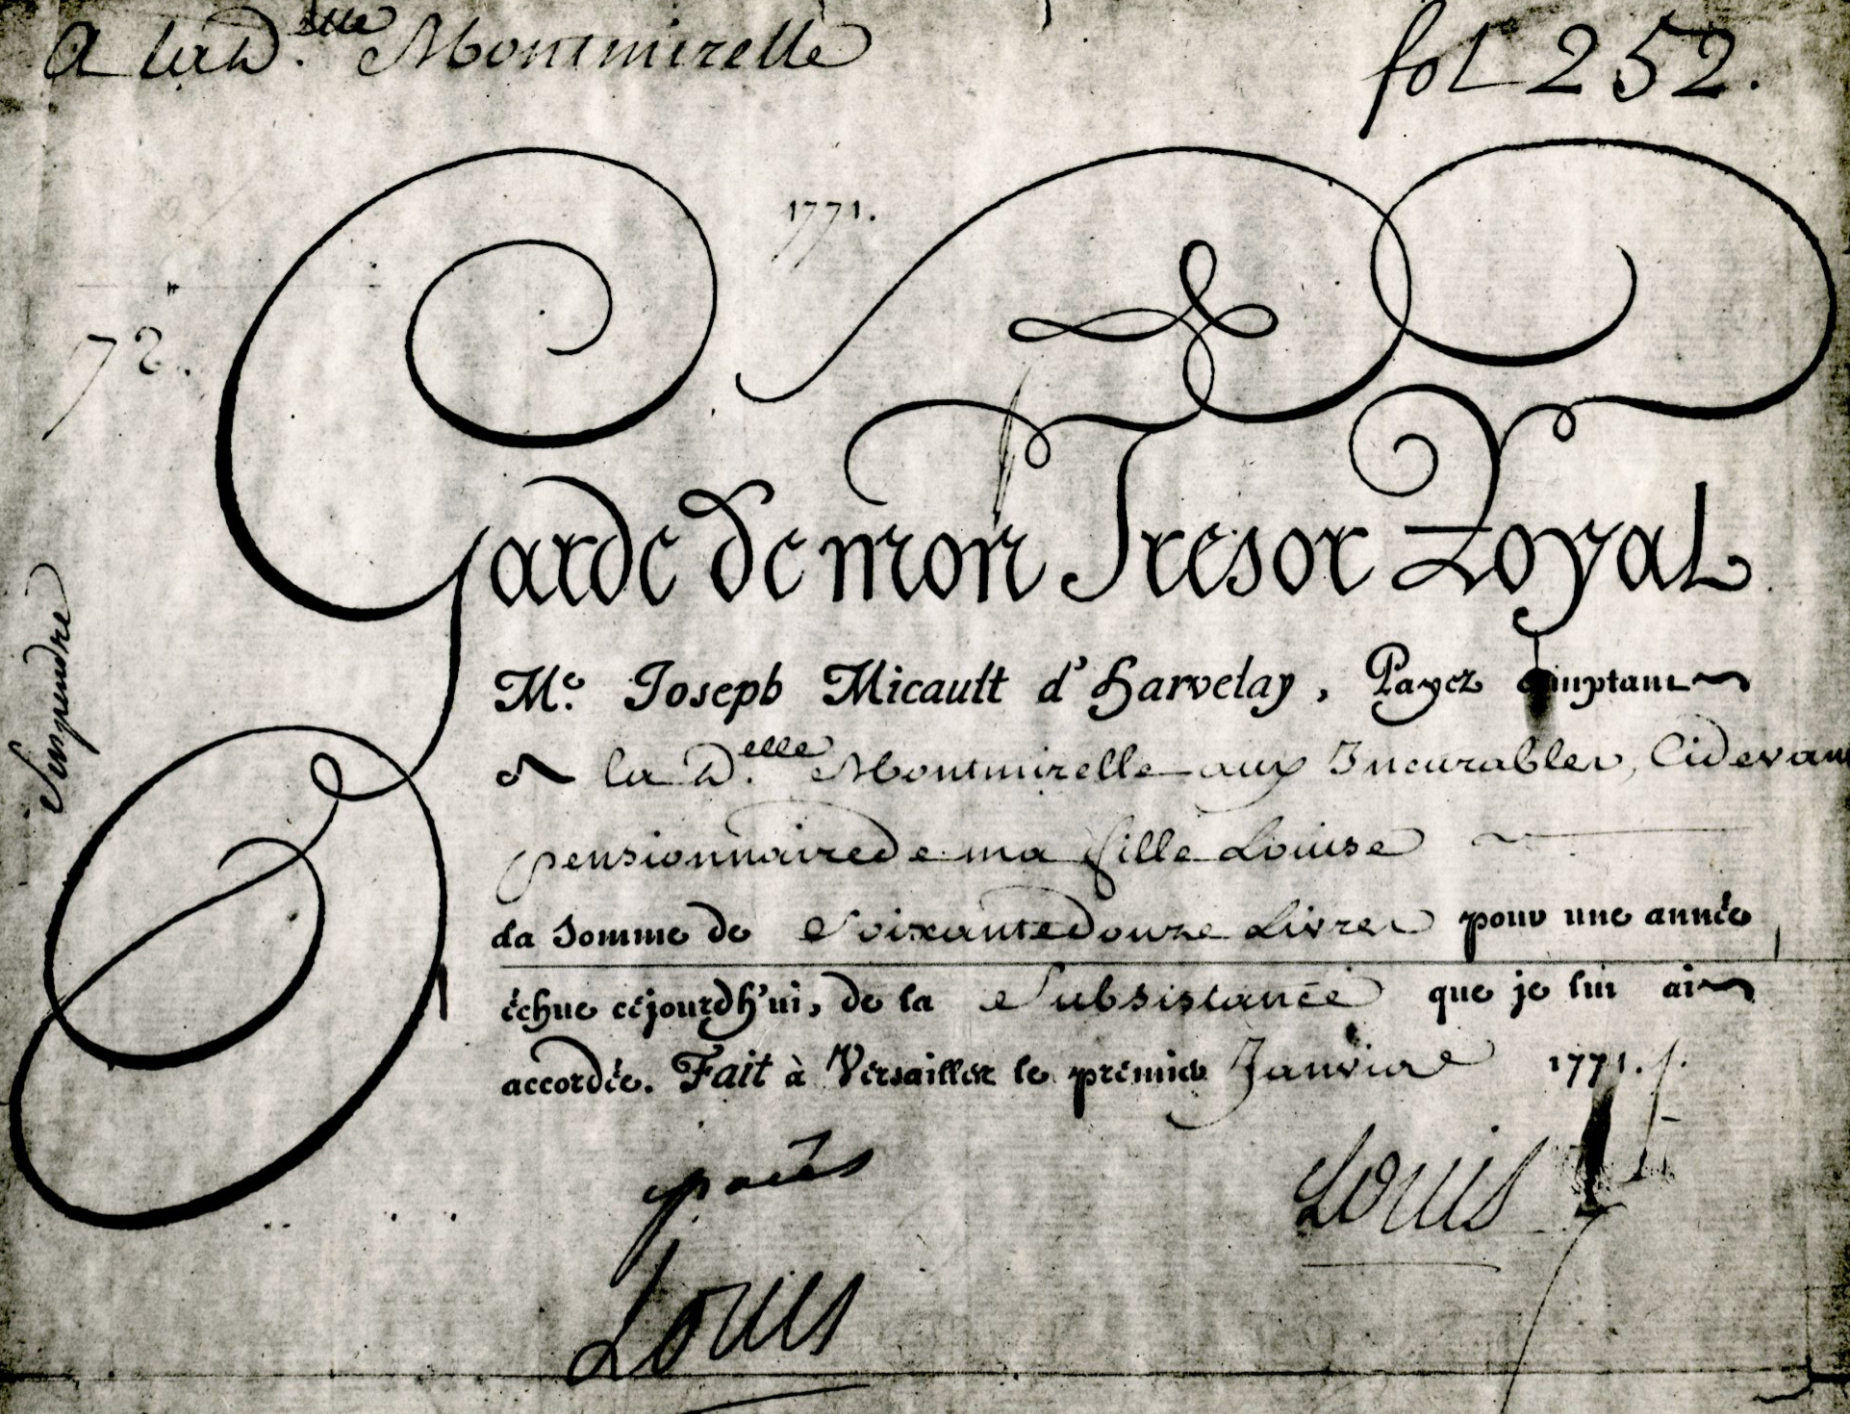 A la D.elle Montmirelle
fol 252.
1771.
72.
Garde de mon Tresor Royal
Me. Joseph Micault d'Harvelay, Payez comptant
a la D.elle Montmirelle aux Incurables, Cidevant
pensionnaire de ma fille Louise
la somme de Soixante Douze Livres pour une année
échue cejourd'hui, de la Subsistance que je lui ai
accordée. Fait à Versailles le premier Janvier 1771.
Louis
Louis